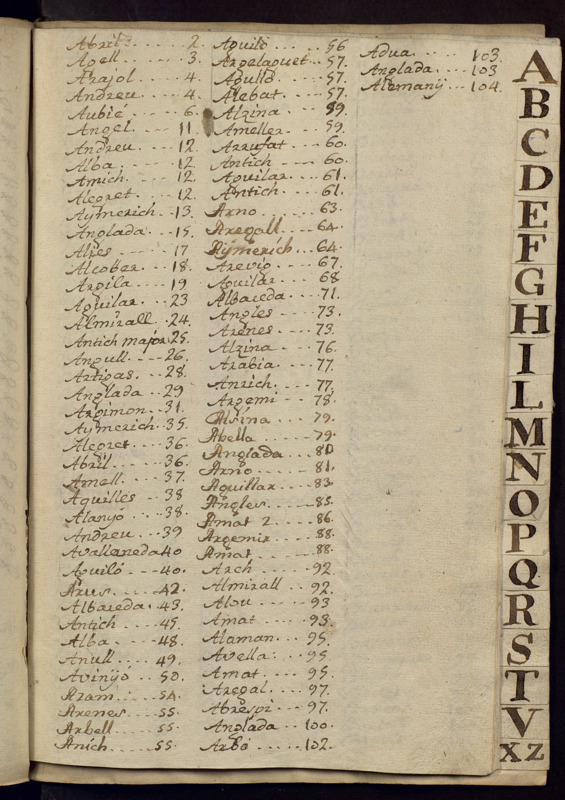 Abril 2.
Agell 3.
Arajol 4.
Andreu 4.
Aubié 6.
Angel 11.
Andreu 12.
Alba 12.
Amich. 12.
Alegret 12.
Aymerich 13.
Anglada 15.
17
Alcober 18.
Argila 19
Aguilar 23
Almirall 24.
Antich major 25.
Angull 26.
Artigas 28.
Anglada 29
Argimon 31.
Aymerich 35.
Alegret 36.
Abril 36.
Amell 37.
Aquilles 38
Alanyó 38.
Andreu 39
Avallaneda 40
Aguiló 40.
Arus 42.
Albareda 43.
Antich 45.
Alba 48.
Anull 49.
Avinyó 50.
Aram 54.
Arenes 55.
Arbell 55.
Anich 55.
Aguiló 56
Argelaguet 57.
Agulló 57.
Alebat 57.
Alzina 59.
Ameller 59.
Arrufat 60.
Antich 60.
Aguilar 61.
Antich 61.
Arno 63.
Aregall 64.
Aymerich 64.
Arevig 67.
Aguilar 68
Albareda 71.
Angles 73.
Arenes 73.
Alzina 76.
Arabia 77.
Anrich 77.
Argemi 78.
Alsina 79.
Abella 79.
Anglada 80
Arnó 81.
Aguillar 83.
Angles 85.
Amat 2 86.
Argemir 88.
Amat 88.
Arch 92
Almirall 92.
Alou 93
Amat 93.
Alaman 95.
Avella 95
Amat 95.
Aregal 97.
Abrespi 97.
Anglada 100.
Arbó 102.
Adua 103.
Anglada 103
Alemany 104.
A
B
C
D
E
F
G
H
I
L
M
N
O
P
Q
R
S
T
V
X Z